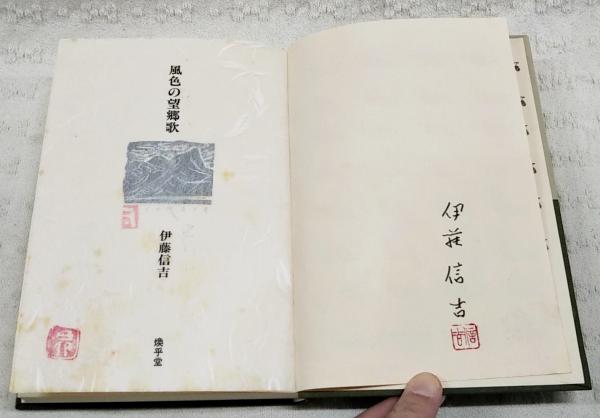 風色の望郷歌
伊藤信吉
煥乎堂
伊藤信吉
信吉